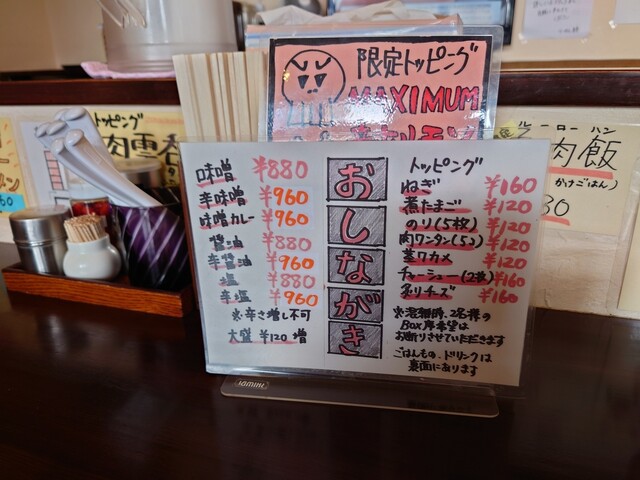 限定トッピング
MAXIMUM
トッピング
肉雲呑
ルーローハン
肉飯
かけごはん)
味噌 ¥880
辛味噌 ¥960
味噌カレー ¥960
醤油 ¥880
辛醤油 ¥960
塩 ¥880
辛塩 ¥960
※辛さ増し不可
大盛 ¥120増
おしながき
トッピング
ねぎ ¥160
煮たまご ¥120
のり(5枚) ¥120
肉ワンタン(5コ) ¥120
茎ワカメ ¥120
チャーシュー(2枚) ¥160
炙りチーズ ¥160
※混雑時、2名様の
Box席希望は
お断りさせていただきます
ごはんもの、ドリンクは
裏面にあります